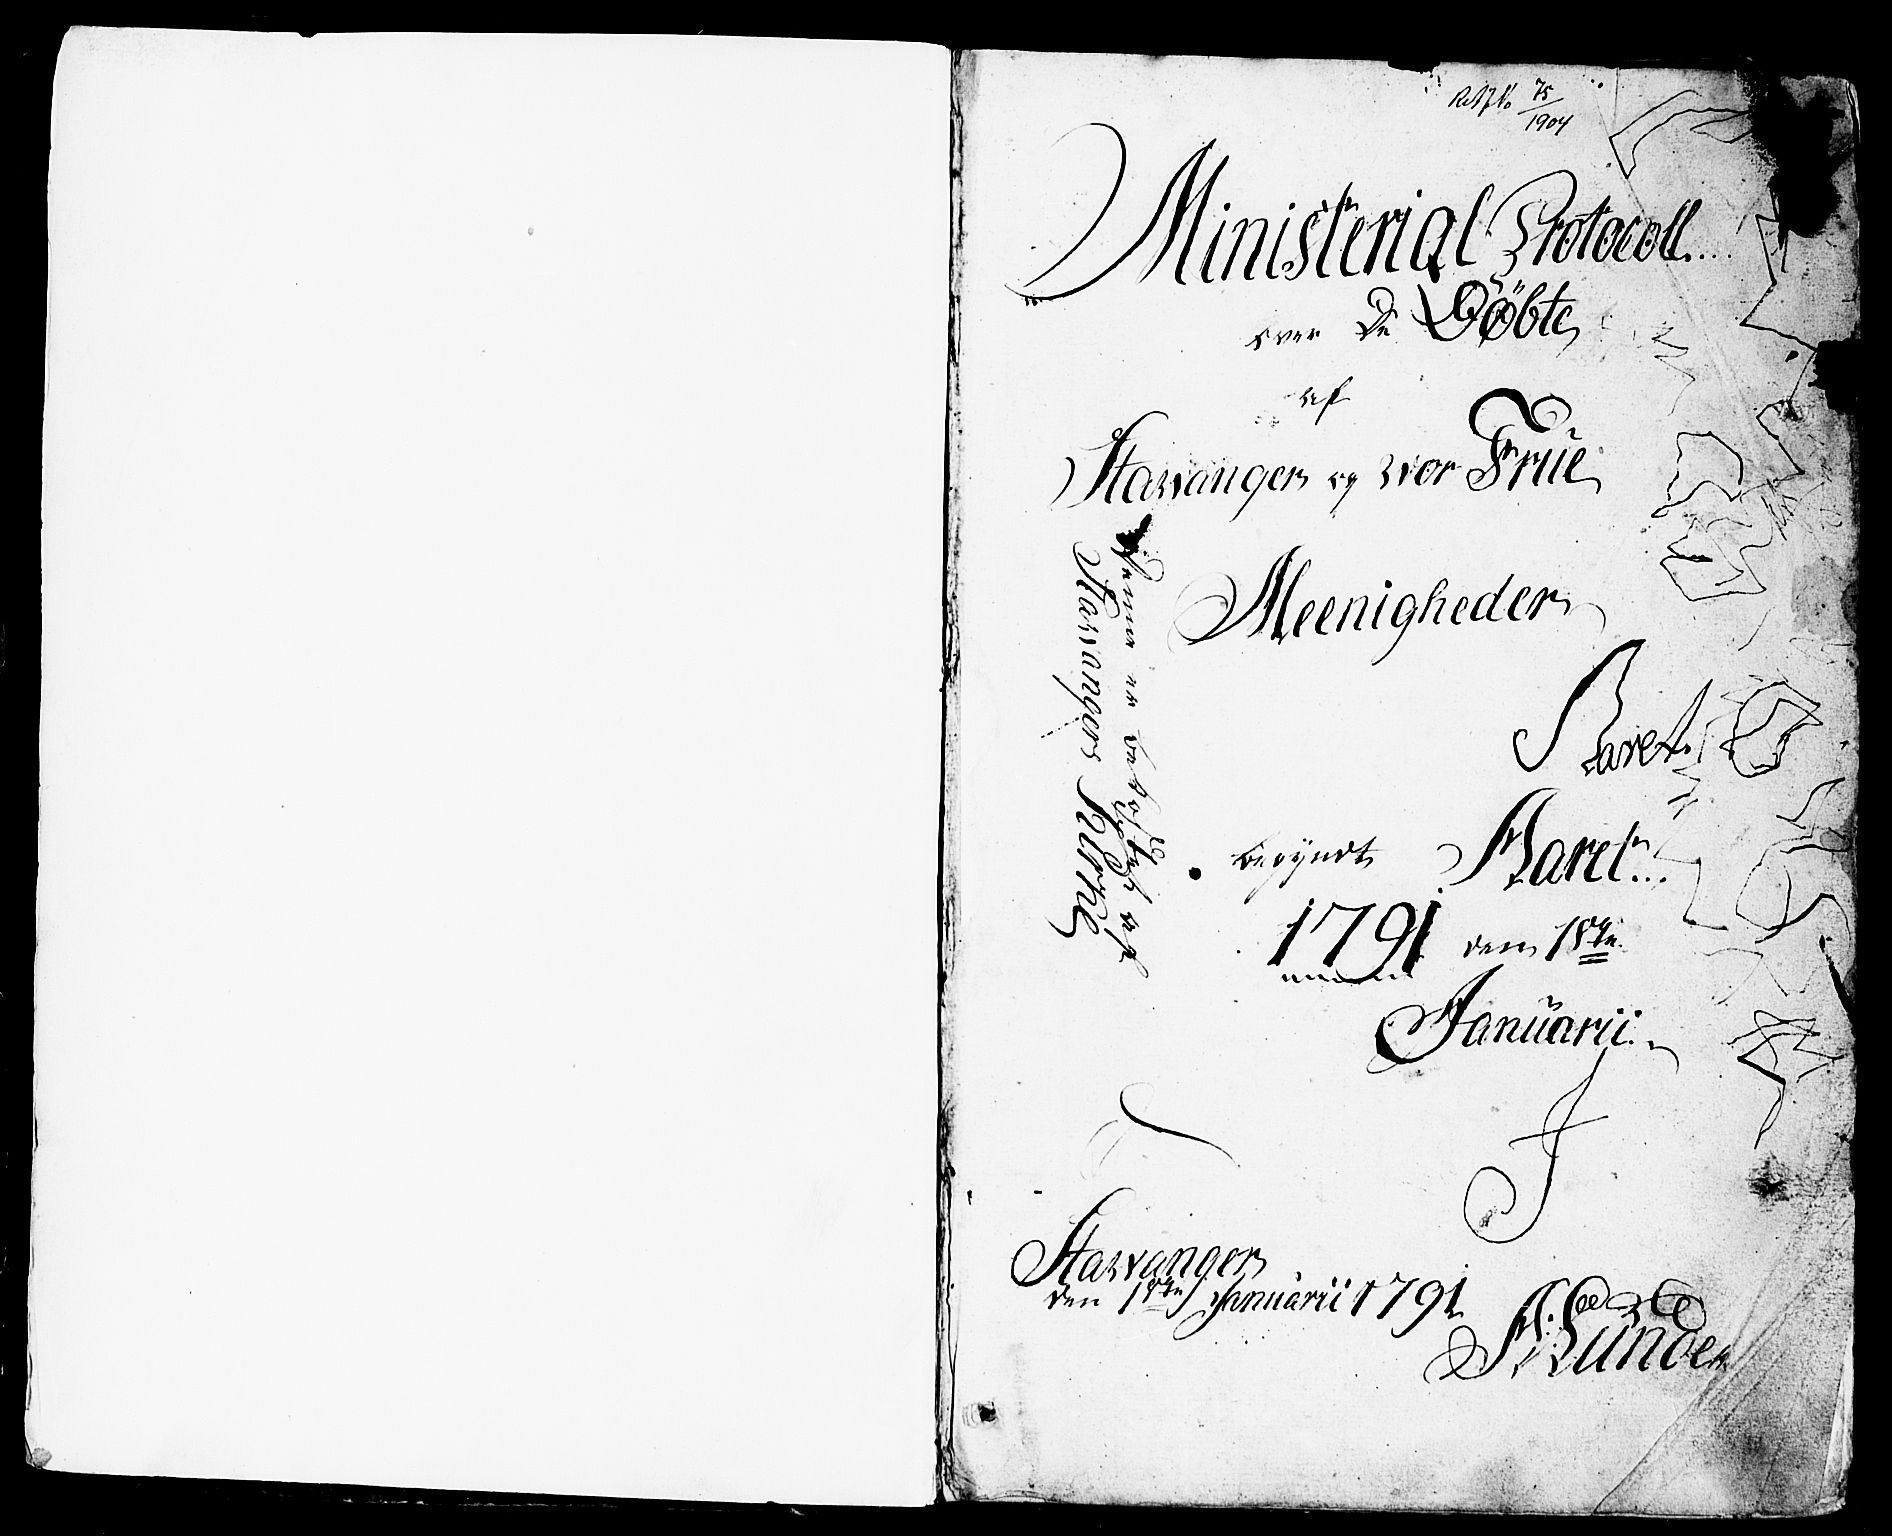 75
1904
Ministerial Protocoll....
over De Döbte
af
Stavanger og vor Frue
Meenigheder
Aaret
begyndt Aaret...
1791 den 1ste
Januarii.
Denne er bekostet af
Stavangers Kirke
Stavanger
den 1ste Januarii 1791
Lunde